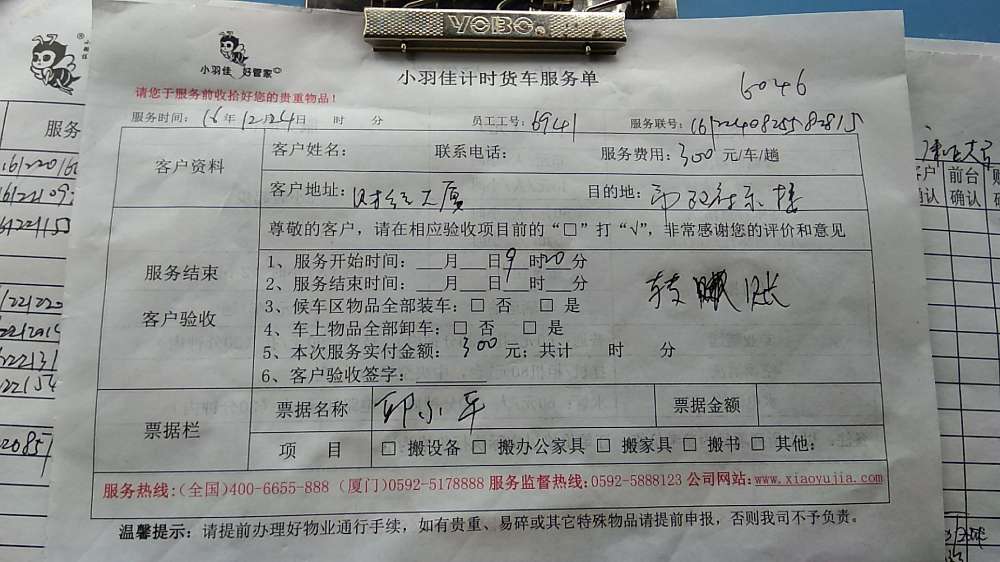 YOBO
小羽佳 好管家
小羽佳计时货车服务单
6046
请您于服务前收拾好您的贵重物品！
服务时间：16年12月24日 时 分 员工工号：6941 服务联号：
客户资料
客户姓名： 联系电话： 服务费用：300元/车/趟
客户地址：财经大厦 目的地：
尊敬的客户，请在相应验收项目前的“□”打“√”，非常感谢您的评价和意见
服务结束
客户验收
1、服务开始时间：___月___日9时20分
2、服务结束时间：___月___日___时___分
3、候车区物品全部装车：□ 否 □ 是
4、车上物品全部卸车：□ 否 □ 是
5、本次服务实付金额：300元；共计 时 分
6、客户验收签字：
票据栏
票据名称 邱小平 票据金额
项 目 □ 搬设备 □ 搬办公家具 □ 搬家具 □ 搬书 □ 其他：
服务热线：(全国)400-6655-888 (厦门)0592-5178888 服务监督热线：0592-5888123 公司网站：www.xiaoyujia.com
温馨提示：请提前办理好物业通行手续，如有贵重、易碎或其它特殊物品请提前申报，否则我司不予负责。
小羽佳
服务
前台
确认